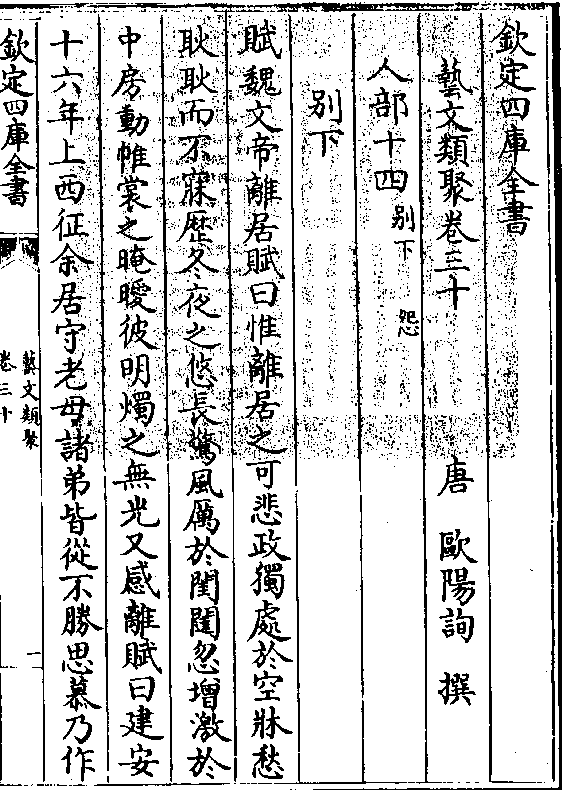 欽定四庫全書
藝文類聚卷三十
唐 歐陽詢 撰
人部十四 别下 怨
别下
賦魏文帝離居賦曰惟離居之可悲政獨處於空牀愁
耿耿而不寐歴冬夜之悠長驚風厲於閨闥忽增激於
中房動帷裳之晻曖彼明燭之無光又感離賦曰建安
十六年上西征余居守老母諸弟皆從不勝思慕乃作
欽定四庫全書
藝文類聚
卷三十
一